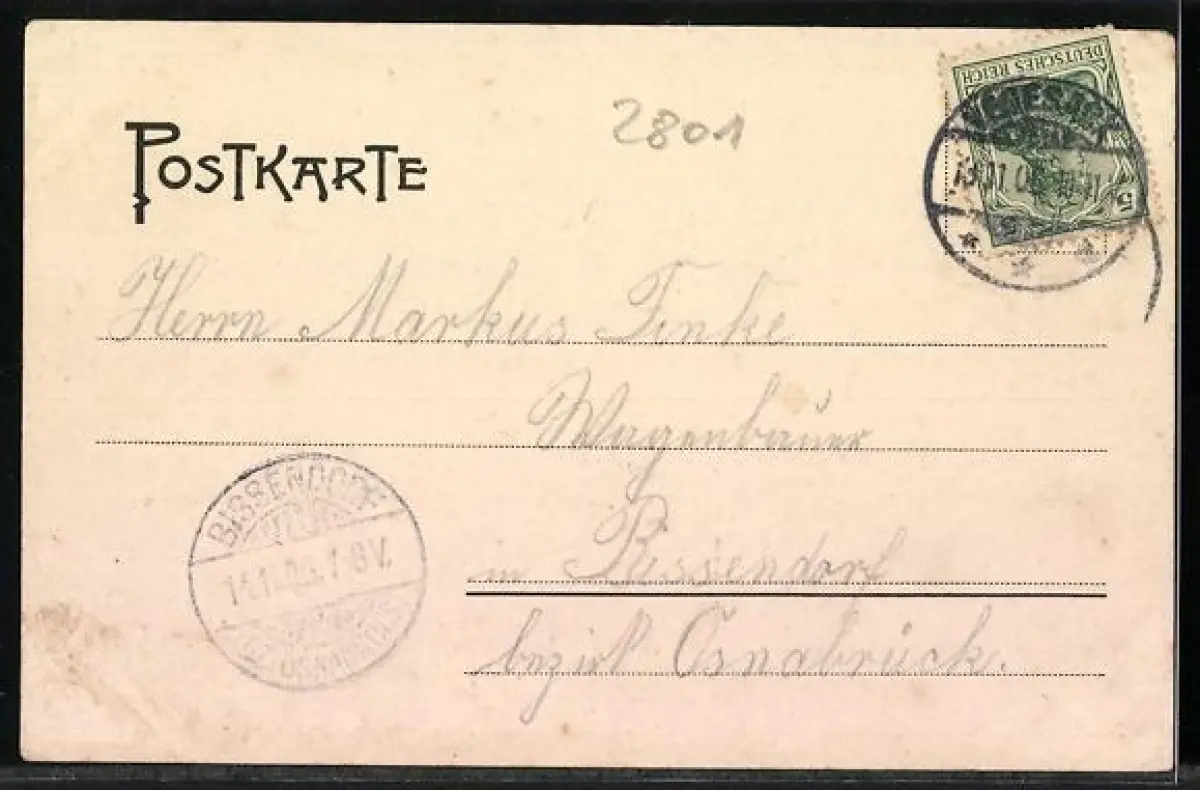 POSTKARTE
2801
DEUTSCHES REICH
5
Herrn Markus Finke
Wagenbauer
in Bissendorf
bezirk Osnabrück.
BISSENDORF
7-8V.